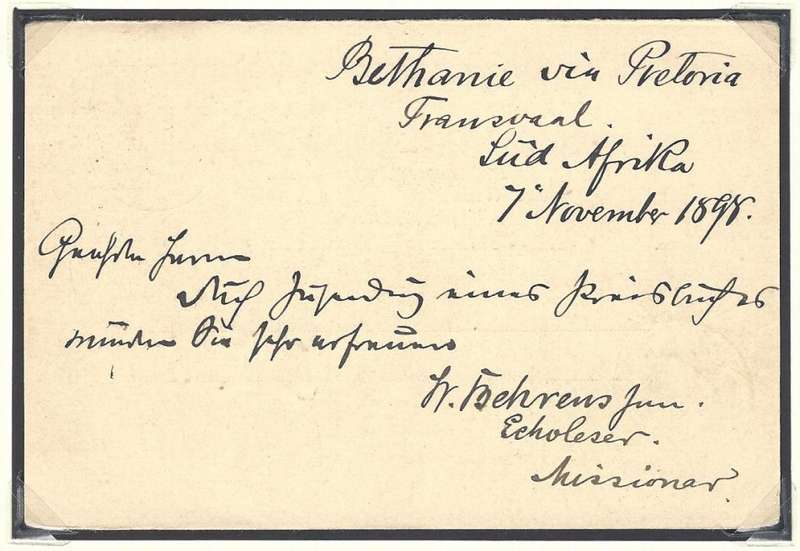 Bethanie via Pretoria
Transvaal.
Süd Afrika
7" November 1898.
Geehrte Herrn
Durch Zusendung eines Preisbuches
würden Sie sehr erfreuen
W. Behrens jun.
Echoleser.
Missionar.